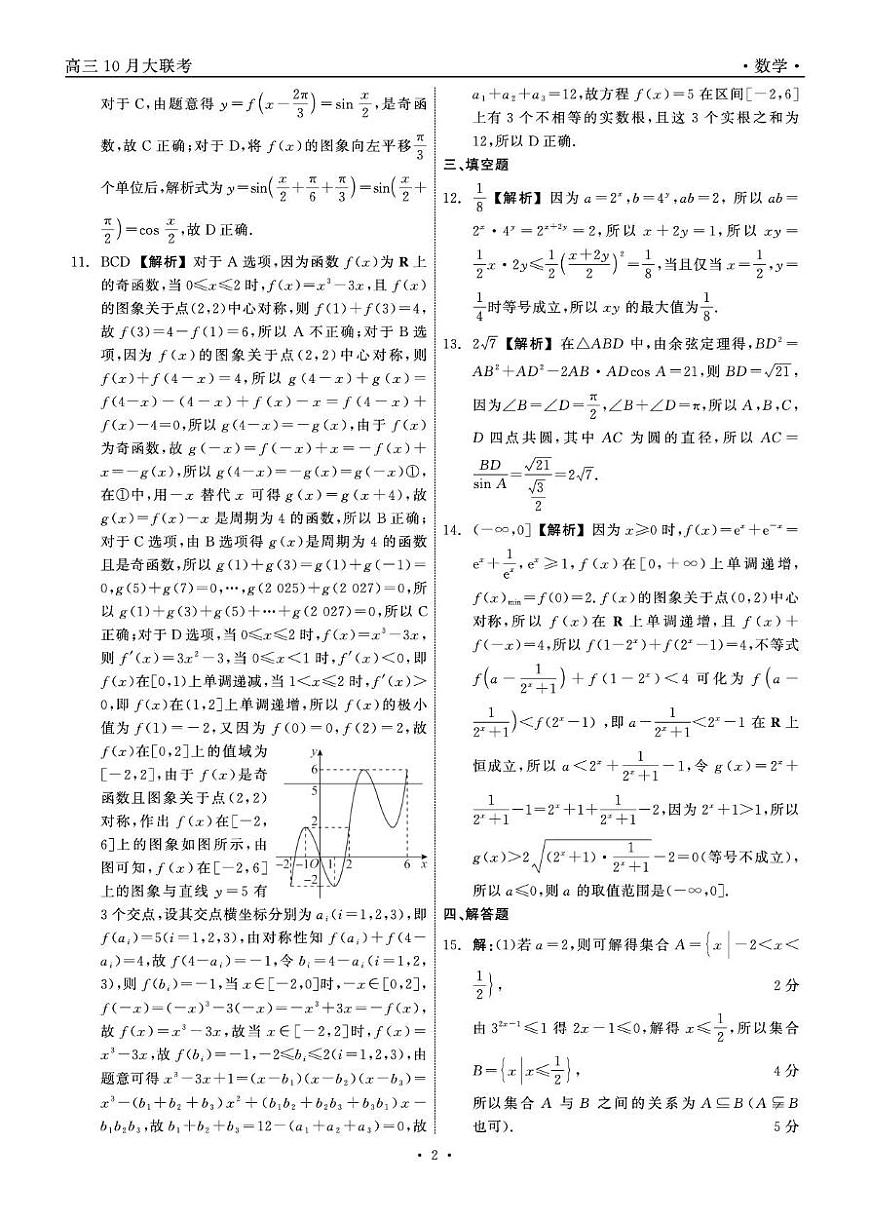 高三10月大联考
·数学·
对于 C,由题意得 y=f(x-2π/3)=sin x/2,是奇函
数,故 C 正确;对于 D,将 f(x)的图象向左平移 π/3
个单位后,解析式为 y=sin(x/2+π/6+π/3)=sin(x/2+
π/2)=cos x/2,故 D 正确.
11. BCD 【解析】对于 A 选项,因为函数 f(x)为 R 上
的奇函数,当 0≤x≤2 时,f(x)=x³-3x,且 f(x)
的图象关于点(2,2)中心对称,则 f(1)+f(3)=4,
故 f(3)=4-f(1)=6,所以 A 不正确;对于 B 选
项,因为 f(x)的图象关于点(2,2)中心对称,则
f(x)+f(4-x)=4,所以 g(4-x)+g(x)=
f(4-x)-(4-x)+f(x)-x=f(4-x)+
f(x)-4=0,所以 g(4-x)=-g(x),由于 f(x)
为奇函数,故 g(-x)=f(-x)+x=-f(x)+
x=-g(x),所以 g(4-x)=-g(x)=g(-x)①,
在①中,用-x 替代 x 可得 g(x)=g(x+4),故
g(x)=f(x)-x 是周期为 4 的函数,所以 B 正确;
对于 C 选项,由 B 选项得 g(x)是周期为 4 的函数
且是奇函数,所以 g(1)+g(3)=g(1)+g(-1)=
0,g(5)+g(7)=0,…,g(2 025)+g(2 027)=0,所
以 g(1)+g(3)+g(5)+…+g(2 027)=0,所以 C
正确;对于 D 选项,当 0≤x≤2 时,f(x)=x³-3x,
则 f′(x)=3x²-3,当 0≤x<1 时,f′(x)<0,即
f(x)在[0,1)上单调递减,当 1<x≤2 时,f′(x)>
0,即 f(x)在(1,2]上单调递增,所以 f(x)的极小
值为 f(1)=-2,又因为 f(0)=0,f(2)=2,故
f(x)在[0,2]上的值域为
[-2,2],由于 f(x)是奇
函数且图象关于点(2,2)
对称,作出 f(x)在[-2,
6]上的图象如图所示,由
图可知,f(x)在[-2,6]
上的图象与直线 y=5 有
y
6
5
2
-2 -1 O 1 2 6 x
-2
3 个交点,设其交点横坐标分别为 aᵢ(i=1,2,3),即
f(aᵢ)=5(i=1,2,3),由对称性知 f(aᵢ)+f(4-
aᵢ)=4,故 f(4-aᵢ)=-1,令 bᵢ=4-aᵢ(i=1,2,
3),则 f(bᵢ)=-1,当 x∈[-2,0]时,-x∈[0,2],
f(-x)=(-x)³-3(-x)=-x³+3x=-f(x),
故 f(x)=x³-3x,故当 x∈[-2,2]时,f(x)=
x³-3x,故 f(bᵢ)=-1,-2≤bᵢ≤2(i=1,2,3),由
题意可得 x³-3x+1=(x-b₁)(x-b₂)(x-b₃)=
x³-(b₁+b₂+b₃)x²+(b₁b₂+b₂b₃+b₃b₁)x-
b₁b₂b₃,故 b₁+b₂+b₃=12-(a₁+a₂+a₃)=0,故
a₁+a₂+a₃=12,故方程 f(x)=5 在区间[-2,6]
上有 3 个不相等的实数根,且这 3 个实根之和为
12,所以 D 正确.
三、填空题
12. 1/8 【解析】因为 a=2ˣ,b=4ʸ,ab=2, 所以 ab=
2ˣ·4ʸ=2ˣ⁺²ʸ=2,所以 x+2y=1,所以 xy=
1/2 x·2y≤1/2((x+2y)/2)²=1/8,当且仅当 x=1/2,y=
1/4时等号成立,所以 xy 的最大值为1/8.
13. 2√7 【解析】在△ABD 中,由余弦定理得,BD²=
AB²+AD²-2AB·ADcos A=21,则 BD=√21,
因为∠B=∠D=π/2,∠B+∠D=π,所以 A,B,C,
D 四点共圆,其中 AC 为圆的直径,所以 AC=
BD/sin A=√21/(√3/2)=2√7.
14. (-∞,0]【解析】因为 x≥0 时,f(x)=eˣ+e⁻ˣ=
eˣ+1/eˣ,eˣ≥1,f(x)在[0,+∞)上单调递增,
f(x)min=f(0)=2.f(x)的图象关于点(0,2)中心
对称,所以 f(x)在 R 上单调递增,且 f(x)+
f(-x)=4,所以 f(1-2ˣ)+f(2ˣ-1)=4,不等式
f(a-1/(2ˣ+1))+f(1-2ˣ)<4 可化为 f(a-
1/(2ˣ+1))<f(2ˣ-1),即 a-1/(2ˣ+1)<2ˣ-1 在 R 上
恒成立,所以 a<2ˣ+1/(2ˣ+1)-1,令 g(x)=2ˣ+
1/(2ˣ+1)-1=2ˣ+1+1/(2ˣ+1)-2,因为 2ˣ+1>1,所以
g(x)>2√((2ˣ+1)·1/(2ˣ+1))-2=0(等号不成立),
所以 a≤0,则 a 的取值范围是(-∞,0].
四、解答题
15. 解:(1)若 a=2,则可解得集合 A={x|-2<x<
1/2}, 2分
由 3²ˣ⁻¹≤1 得 2x-1≤0,解得 x≤1/2,所以集合
B={x|x≤1/2}, 4分
所以集合 A 与 B 之间的关系为 A⊆B(A⫋B
也可). 5分
·2·